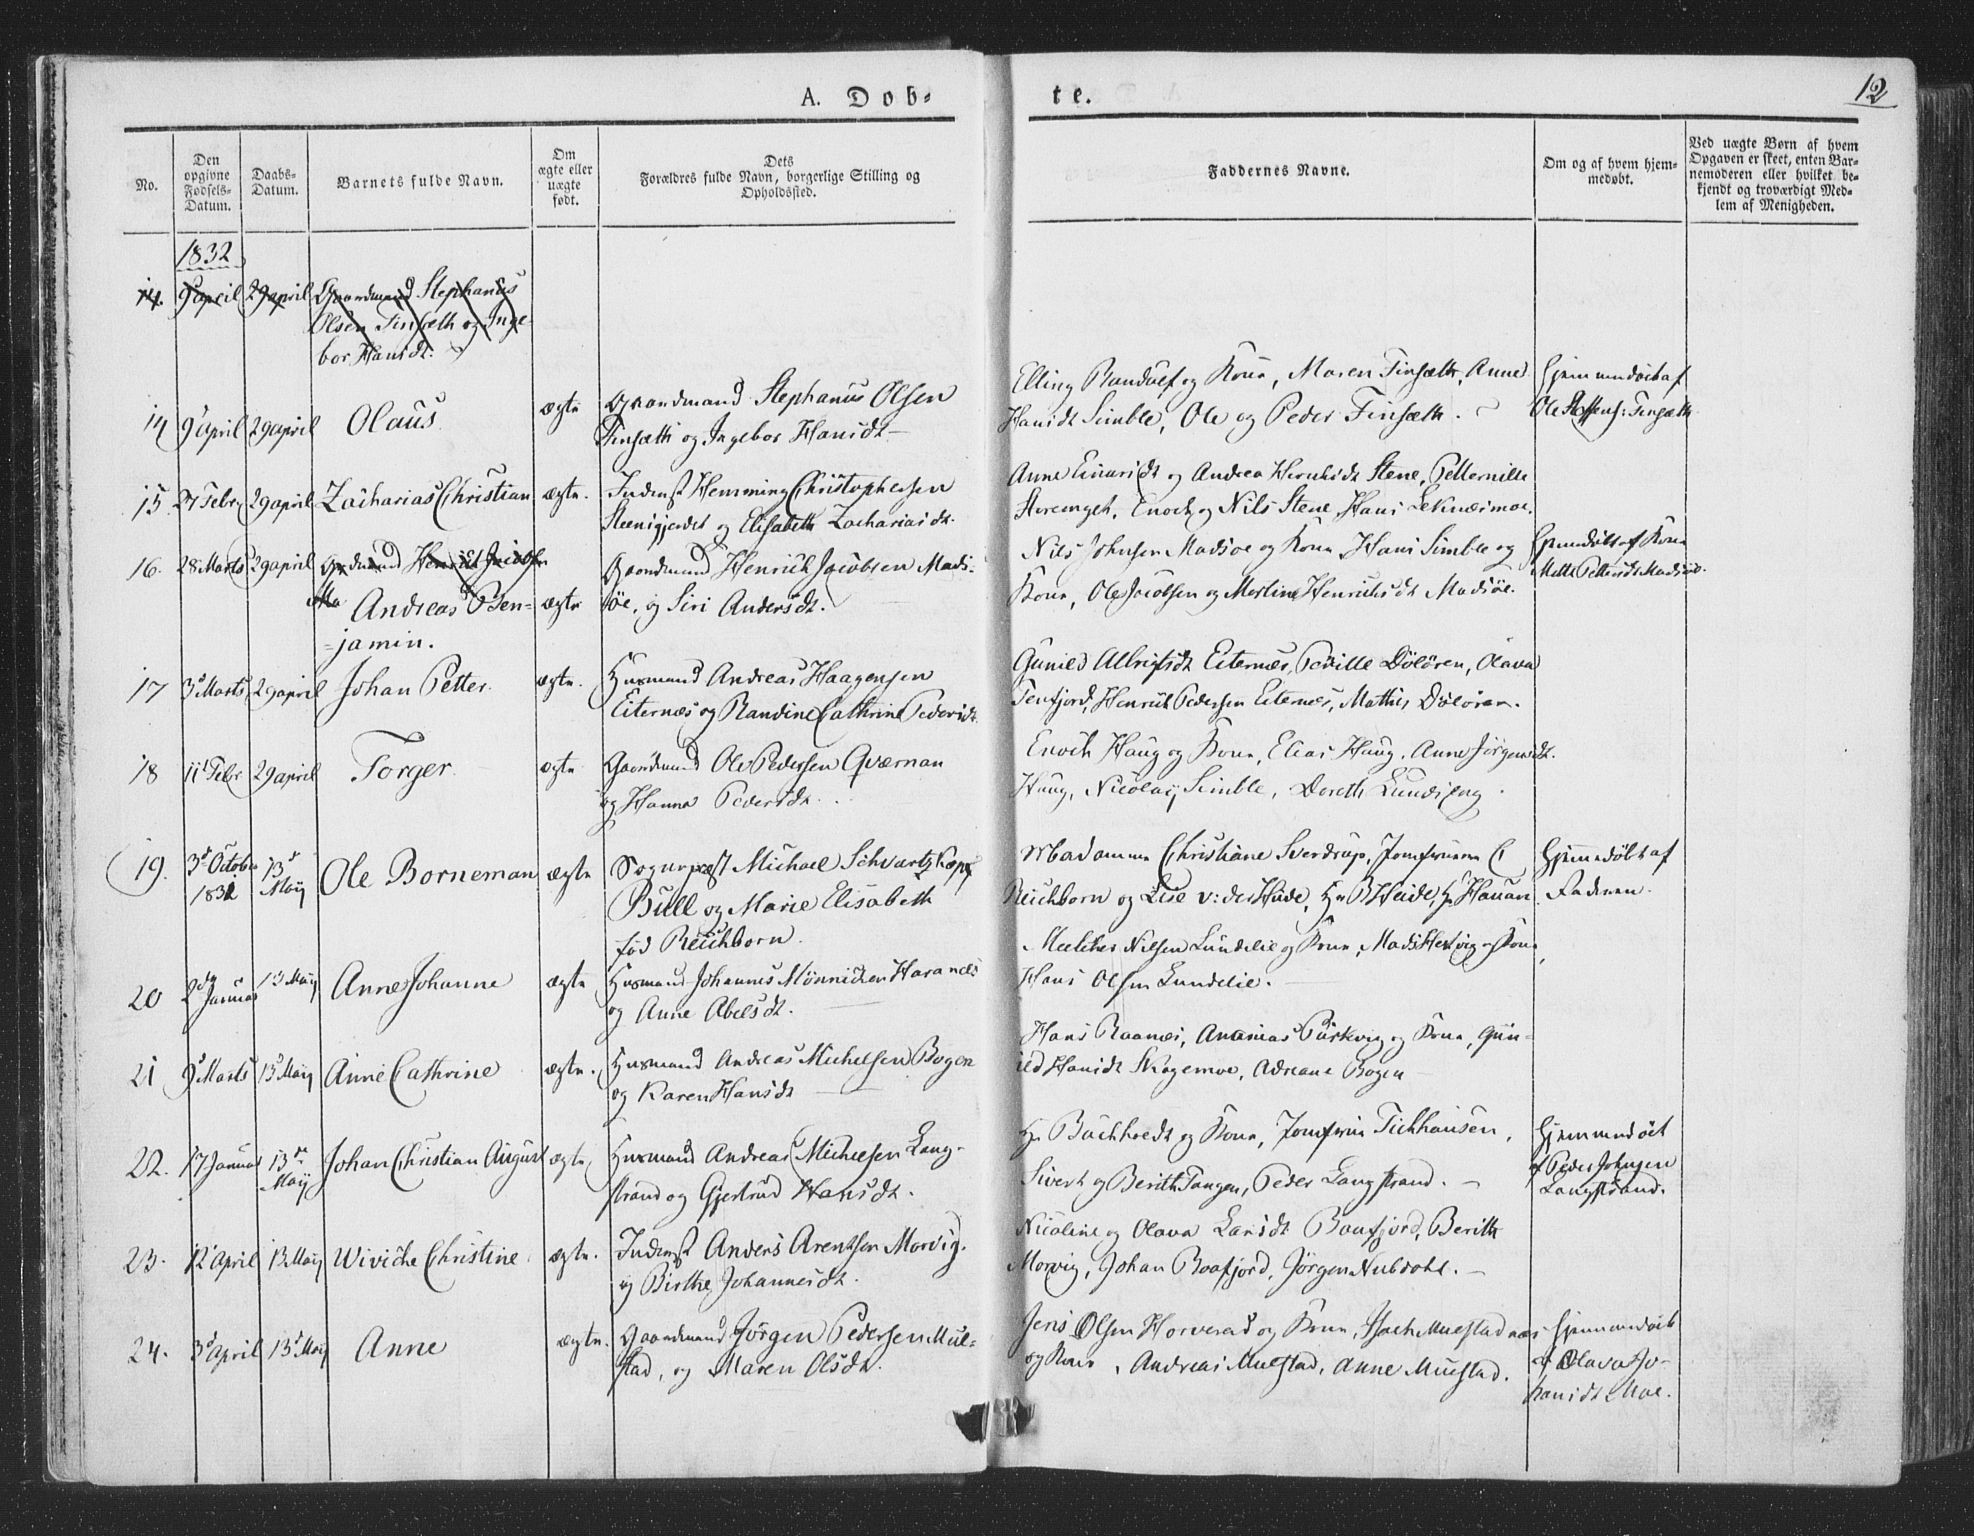 A. Døb-
te.
12
No.
Den
opgivne
Fødsels-
Datum.
Daabs-
Datum.
Barnets fulde Navn.
Om
ægte eller
uægte
født.
Dets
Forældres fulde Navn, borgerlige Stilling og
Opholdssted.
Faddernes Navne.
Om og af hvem hjem-
medøbt.
Ved uægte Børn af hvem
Opgaven er skeet, enten Bar-
nemoderen eller hvilket be-
kjendt og troværdigt Med-
lem af Menigheden.
1832
14. 9 april 29 april Gaardmand Stephanus
Olsen Finsæth og Inge-
bor Hansdt.
14 9 april 29 april Olaus ægte Gaardmand Stephanus Olsen
Finsæth og Ingebor Hansdt
Elling Randulf og Kone, Maren Finsæth, Anne
Hansdt Simble, Ole og Peder Finsæth.
Hjemmedøbt af
Ole Steffens: Finsæth
15. 27 Febr 29 april Zacharias Christian ægte. Inderst Hemming Christophersen
Steensgjerdet og Elisabeth Zachariasdt.
Anne Einarsdt og Andrea Henriksdt Stene, Petternille
Enoch og Nils Stene, Hans Leknæsmoe.
16. 28 Marts 29 april Grdmand Henrik Jacobsen
Ma Andreas Ben-
-jamin.
ægte Gaardmand Henrich Jacobsen Mads-
søe, og Siri Andersdt.
Nils Johnsen Madsøe og Kone, Hans Simble og
Kone, Ole Jacobsen og Merline Henriksdt Madsøe.
Hjemdøbt af Kone
Mette Pettersdt Madsøe.
17 3 Marts 29 april Johan Petter ægte. Husmand Andreas Haagensen
Eiternæs og Randine Cathrine Pedersdt.
Gunild Albrigtsdt Eiternæs, Pernille Döløren, Olava
Tenfjord, Henrik Pedersen Eiternæs, Mathis Döløren.
18 11 Febr 29 april Torger ægte Gaardmand Ole Pedersen Qværnan
og Hanna Pedersdt.
Enoch Haug og Kone, Elias Haug, Anne Jörgensdt.
Haug, Nicolay Simble, Doreth Lundseng.
19. 3d October
1831 13d
Maij Ole Borneman ægte Sogneprest Michael Schvartzkopf
Bull og Marie Elisabeth
fød Reichborn.
Madamme Christiane Sverdrup, Jomfruerne C
Reichborn og Lise v: der Hude, Hr B Heide, Hr Hauan
Hjemmedöbt af
Faderen.
20 2den Januar 13 Maij Anne Johanne ægte Husmand Johannes Mönnichen Haranæs
og Anne Abelsdt.
Melcher Nilsen Lundelie og Kone, Mads Hertvig og Kone
Hans Olsen Lundelie.
21 9 Marts 13 Maij Anne Cathrine ægte. Husmand Andreas Michelsen Bogen
og Karen Hansdt
Hans Raanæs, Ananias Parkvig og Kone, Gun-
ild Hansdt Skogemoe, Adriane Bogen
22. 17 Januar 13de
Maij Johan Christian August ægte Husmand Andreas Michelsen Lang-
strand og Gjertrud Hansdt.
Hr Bachhoedt og Kone, Jomfrue Tichhausen,
Sivert og Berith Tangen, Peder Langstrand.
Hjemmedøbt
af Peder Johnsen
Langstrand.
23. 12 April 13 Maij Wiviche Christine ægte. Inderst Anders Arentsen Morvig.
og Birthe Johannesdt.
Nicoline og Olava Larsdt Baafjord, Berith
Morvig, Johan Baafjord, Jørgen Nubdahl.
24. 3d april 13d Maij Anne ægte. Gaardmand Jörgen Pedersen Mul-
stad, og Maren Olsdt.
Jens Olsen Horverad og Kone, Isach Mulstad
og Kone, Andreas Mulstad, Anne Mulstad.
Hjemmedøbt
af Olava Jo-
hansdt Moe.